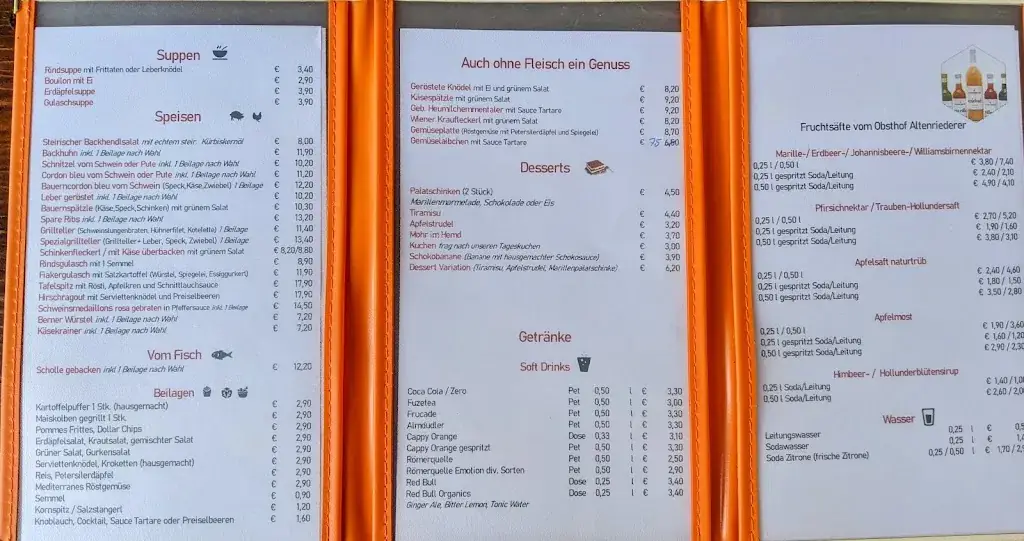 Suppen
Rindsuppe mit Frittaten oder Leberknödel € 3,40
Bouillon mit Ei € 2,90
Erdäpfelsuppe € 3,90
Gulaschsuppe € 3,90
Speisen
Steirischer Backhendlsalat mit echtem steir. Kürbiskernöl € 8,00
Backhuhn inkl. 1 Beilage nach Wahl € 11,20
Schnitzel vom Schwein oder Pute inkl. 1 Beilage nach Wahl € 10,20
Cordon bleu vom Schwein oder Pute inkl. 1 Beilage nach Wahl € 11,20
Bauerncordon bleu vom Schwein (Speck,Käse,Zwiebel) 1 Beilage € 12,20
Leber geröstet inkl. 1 Beilage nach Wahl € 10,20
Bauernspätzle (Käse,Speck,Schinken) mit grünem Salat € 10,30
Spare Ribs inkl. 1 Beilage nach Wahl € 13,20
Grillteller (Schweinslungenbraten, Hühnerfilet, Kotelette) 1 Beilage € 11,40
Spezialgrillteller (Grillteller+ Leber, Speck, Zwiebel) 1 Beilage € 13,40
Schinkenfleckerl / mit Käse überbacken mit grünem Salat € 8,20/8,80
Rindsgulasch mit 1 Semmel € 8,90
Fiakergulasch mit Salzkartoffel (Würstel, Spiegelei, Essiggurkerl) € 11,90
Tafelspitz mit Rösti, Apfelkren und Schnittlauchsauce € 17,90
Hirschragout mit Serviettenknödel und Preiselbeeren € 17,90
Schweinsmedaillons rosa gebraten in Pfeffersauce inkl. 1 Beilage € 14,50
Berner Würstel inkl. 1 Beilage nach Wahl € 7,20
Käsekrainer inkl. 1 Beilage nach Wahl € 7,20
Vom Fisch
Scholle gebacken inkl 1 Beilage nach Wahl € 12,20
Beilagen
Kartoffelpuffer 1 Stk. (hausgemacht) € 2,90
Maiskolben gegrillt 1 Stk. € 2,90
Pommes Frittes, Dollar Chips € 2,90
Erdäpfelsalat, Krautsalat, gemischter Salat € 2,90
Grüner Salat, Gurkensalat € 2,90
Serviettenknödel, Kroketten (hausgemacht) € 2,90
Reis, Petersilerdäpfel € 2,90
Mediterranes Röstgemüse € 2,90
Semmel € 0,90
Kornspitz / Salzstangerl € 1,20
Knoblauch, Cocktail, Sauce Tartare oder Preiselbeeren € 1,60
Auch ohne Fleisch ein Genuss
Geröstete Knödel mit Ei und grünem Salat € 8,20
Käsespätzle mit grünem Salat € 9,20
Geb. Heumilchemmentaler mit Sauce Tartare € 9,20
Wiener Krautfleckerl mit grünem Salat € 8,20
Gemüseplatte (Röstgemüse mit Petersilerdäpfel und Spiegelei) € 8,70
Gemüselaibchen mit Sauce Tartare € 6,80
Desserts
Palatschinken (2 Stück) € 4,50
Marillenmarmelade, Schokolade oder Eis
Tiramisu € 4,40
Apfelstrudel € 3,20
Mohr im Hemd € 3,70
Kuchen frag nach unseren Tageskuchen € 3,00
Schokobanane (Banane mit hausgemachter Schokosauce) € 3,90
Dessert Variation (Tiramisu, Apfelstrudel, Marillenpalatschinke) € 6,20
Getränke
Soft Drinks
Coca Cola / Zero Pet 0,50 l € 3,30
Fuzetea Pet 0,50 l € 3,00
Frucade Pet 0,50 l € 3,30
Almdudler Pet 0,50 l € 3,30
Cappy Orange Dose 0,33 l € 3,10
Cappy Orange gespritzt Pet 0,50 l € 3,30
Römerquelle Pet 0,50 l € 2,50
Römerquelle Emotion div. Sorten Pet 0,50 l € 2,90
Red Bull Dose 0,25 l € 3,40
Red Bull Organics Dose 0,25 l € 3,40
Ginger Ale, Bitter Lemon, Tonic Water
Fruchtsäfte vom Obsthof Altenriederer
Marille-/ Erdbeer-/ Johannisbeere-/ Williamsbirnennektar
0,25 l / 0,50 l € 3,80 / 7,40
0,25 l gespritzt Soda/Leitung € 2,40 / 2,10
0,50 l gespritzt Soda/Leitung € 4,90 / 4,10
Pfirsichnektar / Trauben-Hollundersaft
0,25 l / 0,50 l € 2,70 / 5,20
0,25 l gespritzt Soda/Leitung € 1,90 / 1,60
0,50 l gespritzt Soda/Leitung € 3,80 / 3,10
Apfelsaft naturtrüb
0,25 l / 0,50 l € 2,40 / 4,60
0,25 l gespritzt Soda/Leitung € 1,80 / 1,50
0,50 l gespritzt Soda/Leitung € 3,50 / 2,80
Apfelmost
0,25 l / 0,50 l € 1,90 / 3,60
0,25 l gespritzt Soda/Leitung € 1,60 / 1,20
0,50 l gespritzt Soda/Leitung € 2,90 / 2,30
Himbeer-/ Hollunderblütensirup
0,25 l Soda/Leitung € 1,40 / 1,00
0,50 l Soda/Leitung € 2,60 / 2,00
Wasser
Leitungswasser 0,25 l €
Sodawasser 0,25 l €
Soda Zitrone (frische Zitrone) 0,25 / 0,50 l € 1,70 /